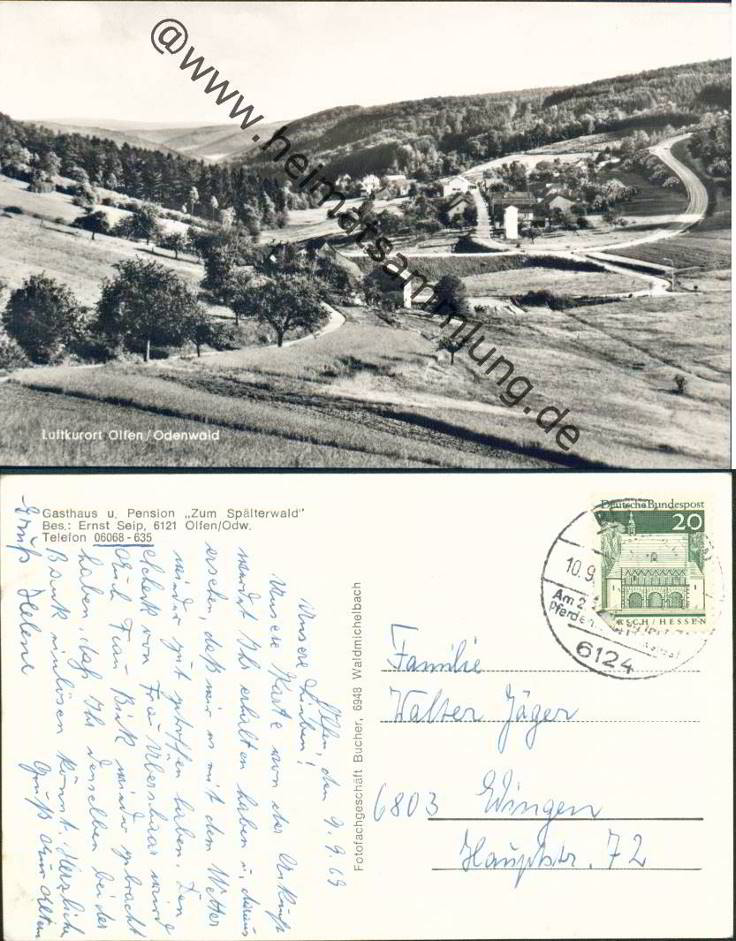 @www.heimatsammlung.de
Luftkurort Olfen/Odenwald
Gasthaus u. Pension „Zum Spälterwald"
Bes.: Ernst Seip, 6121 Olfen/Odw.
Telefon 06068-635
Deutsche Bundespost
20
LORSCH/HESSEN
10.9.
Am 2
Pferde
6124
Fotofachgeschäft Bucher, 6948 Waldmichelbach
Familie
Walter Jäger
6803 Edingen
Hauptstr. 72
Olfen, den 9.9.69
Unsere Lieben!
Unsere Karte von der Ankunft
werdet Ihr erhalten haben u. daraus
ersehen, daß wir es mit dem Wetter
wieder gut getroffen haben. Den
Scheck von Frau Übershaar wird
Euch Frau Bick wieder gebracht
haben, daß Ihr denselben bei der
Bank einlösen könnt. Herzliche
Grüße Eure Alten
Gruß Helene